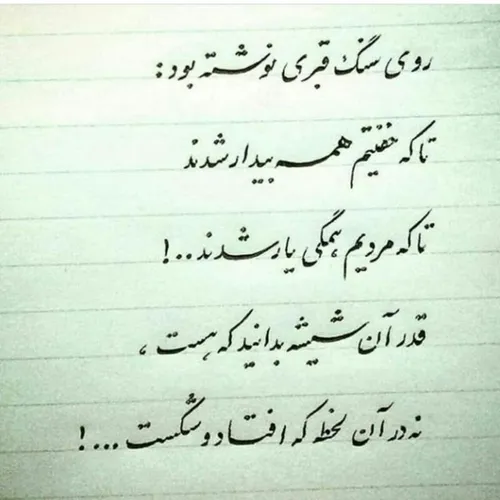 روی سنگ قبری نوشته بود:
تا که خفتیم همه بیدار شدند
تا که مردیم همگی یار شدند..!
قدر آن شیشه بدانید که هست،
نه در آن لحظه که افتاد و شکست...!